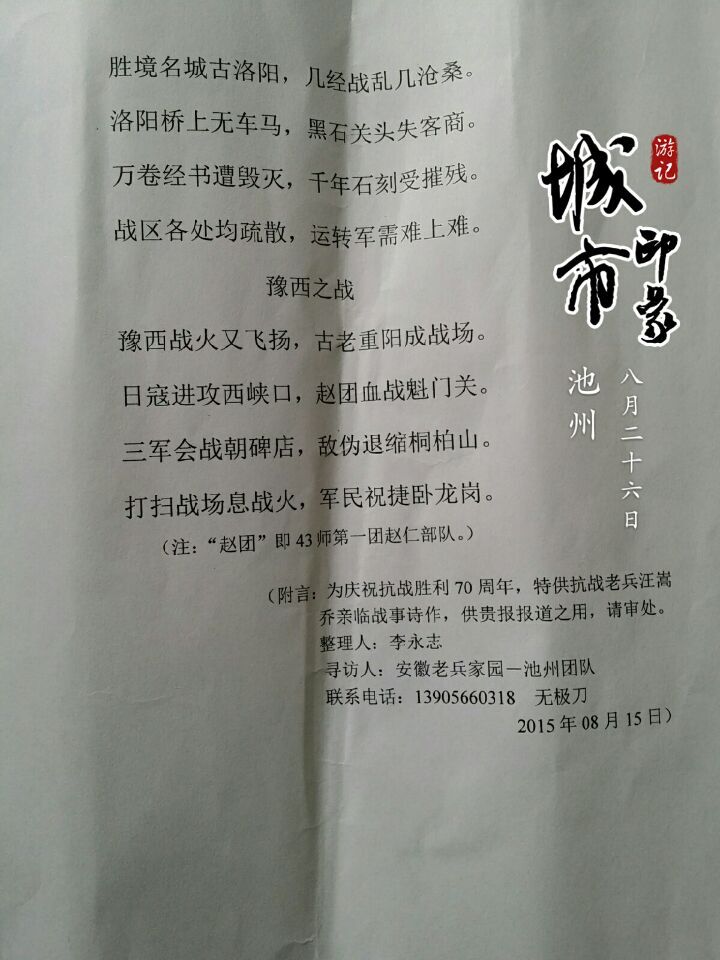 胜境名城古洛阳，几经战乱几沧桑。
洛阳桥上无车马，黑石关头失客商。
万卷经书遭毁灭，千年石刻受摧残。
战区各处均疏散，运转军需难上难。
豫西之战
豫西战火又飞扬，古老重阳成战场。
日寇进攻西峡口，赵团血战魁门关。
三军会战朝碑店，敌伪退缩桐柏山。
打扫战场息战火，军民祝捷卧龙岗。
（注：“赵团”即 43 师第一团赵仁部队。）
（附言：为庆祝抗战胜利 70 周年，特供抗战老兵汪嵩
乔亲临战事诗作，供贵报报道之用，请审处。
整理人：李永志
寻访人：安徽老兵家园－池州团队
联系电话：13905660318　无极刀
2015 年 08 月 15 日）
游记
城市
印象
池州
八月二十六日